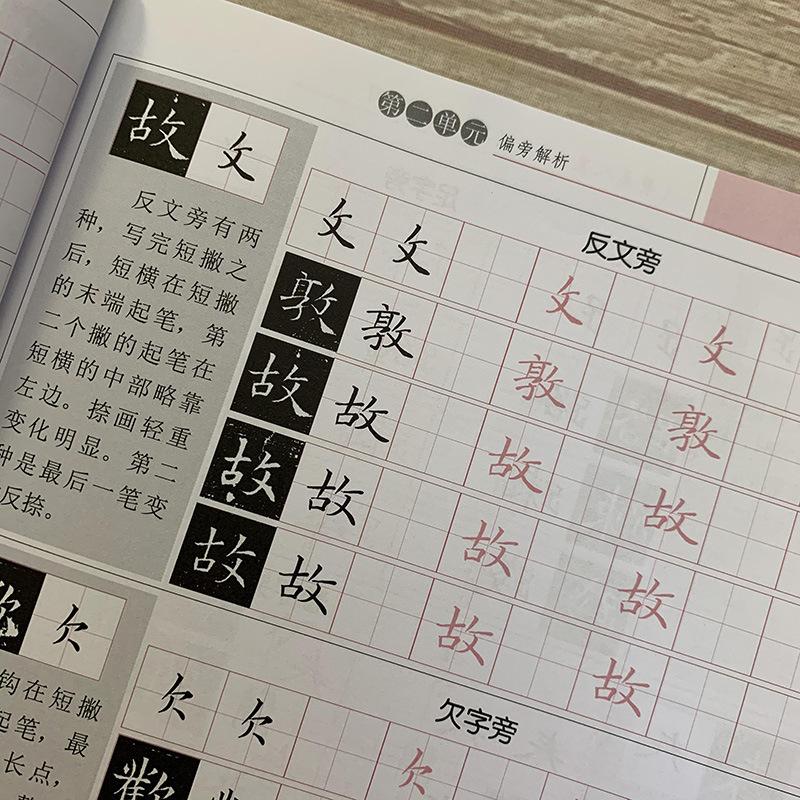 第二单元
偏旁解析
故 攵
反文旁有两
种，写完短撇之
后，短横在短撇
的末端起笔，第
二个撇的起笔在
短横的中部略靠
左边。捺画轻重
变化明显。第二
种是最后一笔变
反捺。
反文旁
攵 攵 攵 攵
敦 敦 敦 敦
故 故 故 故
故 故 故 故
故 故 故 故
欠
钩在短撇
起笔，最
长点，
欠字旁
欠 欠 欠
歡